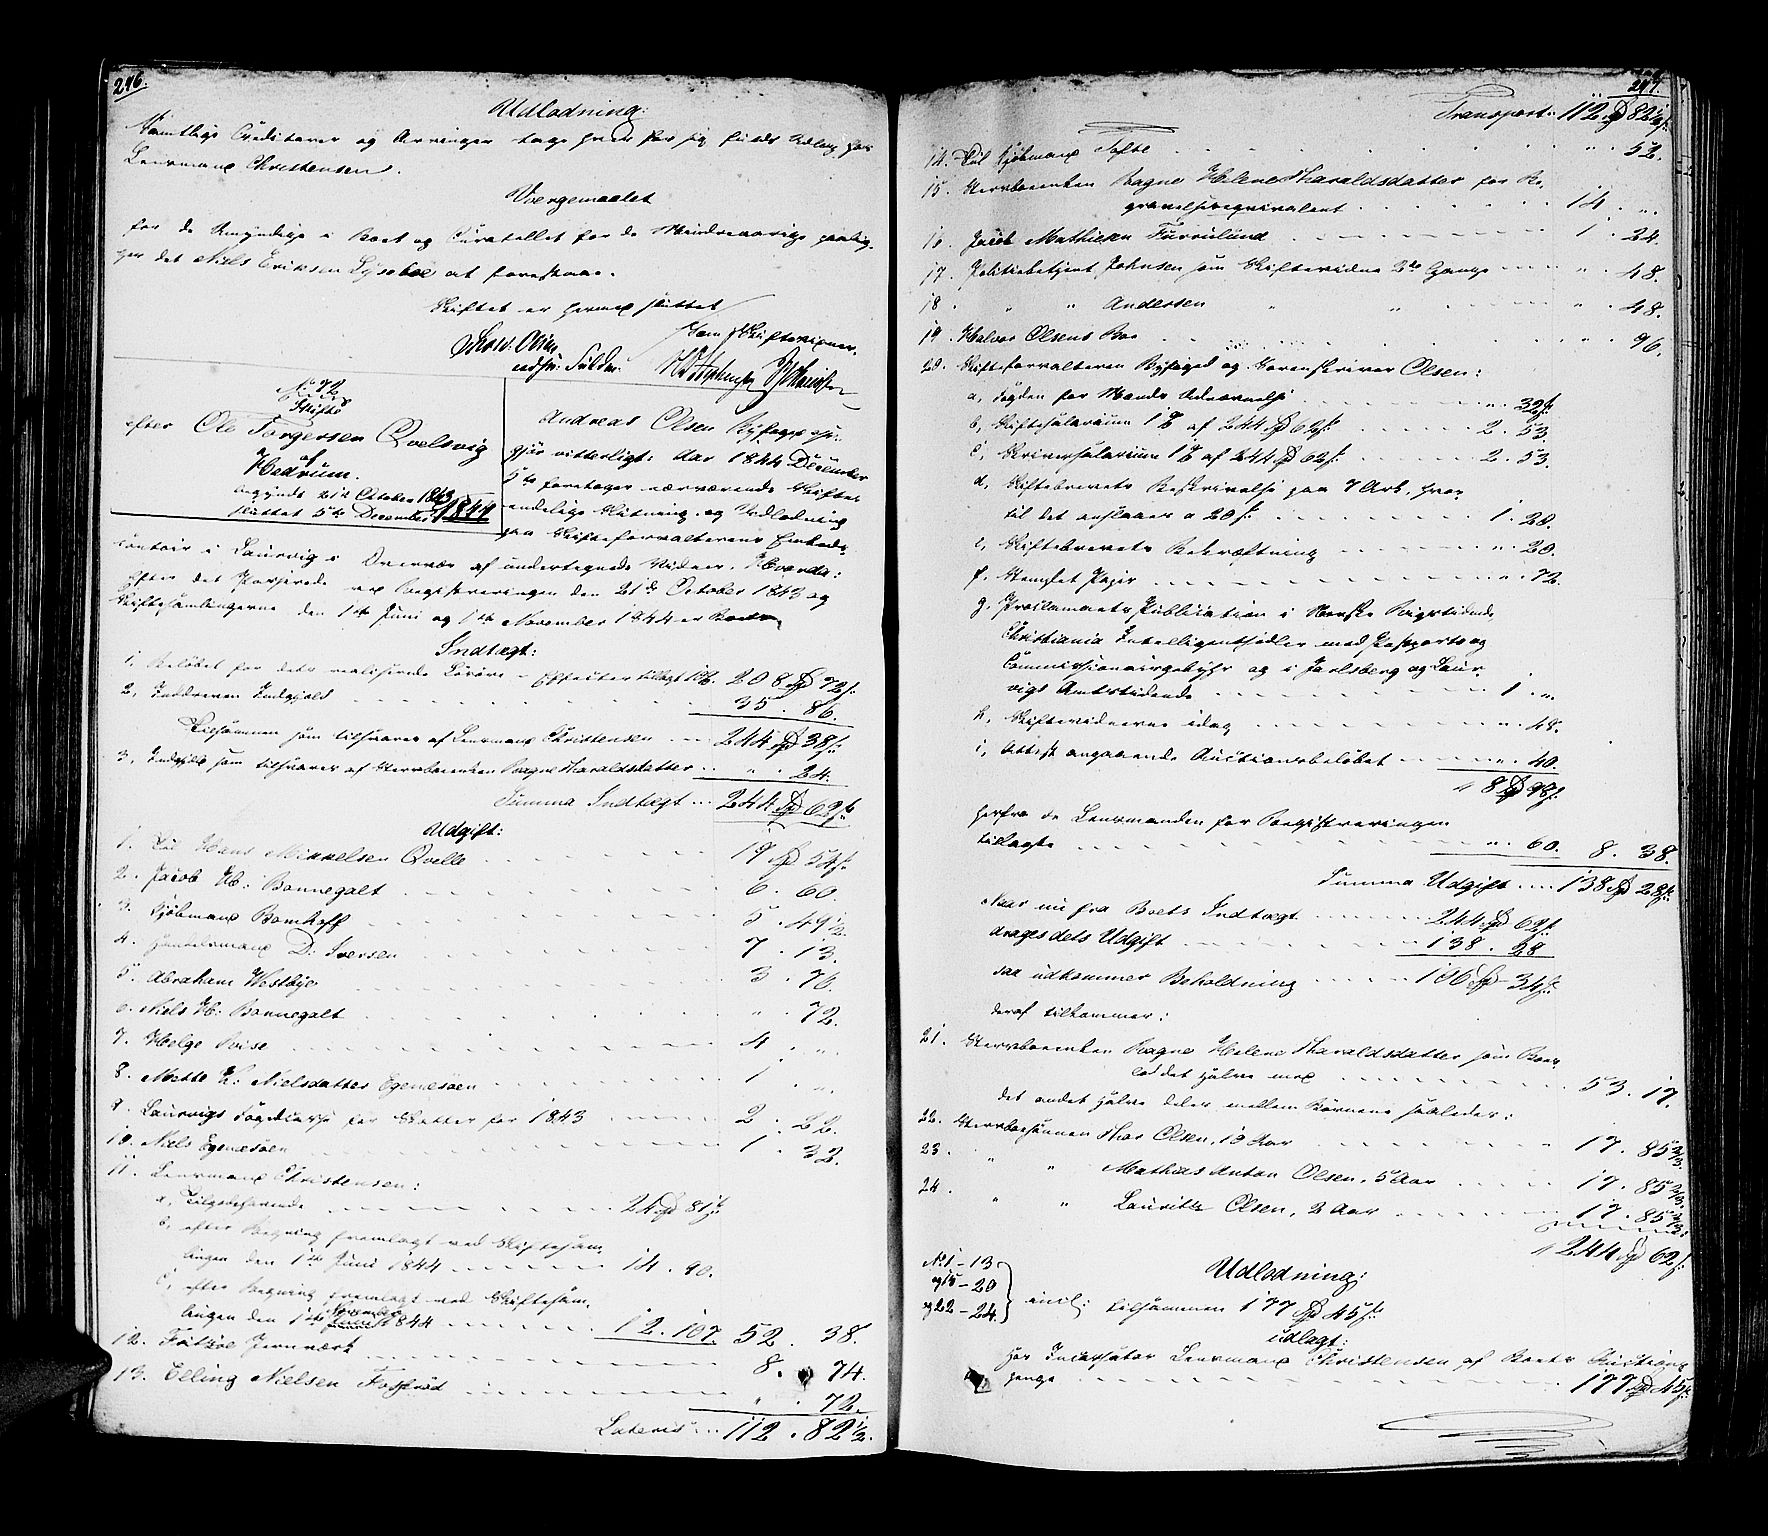 246.
Udlodning:
Samtlige Creditorer og Arvinger tage hver for sig fuldt Udlæg hos
Lensmand Christensen.
Værgemaalet
for de Umyndige i Boet og Curatellet for de Mindreaarige paalig-
ger det Niels Eriksen Lyseboe at forestaae.
Skiftet er hermed sluttet
Som Skiftevidner.
No 72
Skifte
efter Ole Torgersen Qvelsvig
af
Hedrum.
begyndt 21de October 1843
sluttet 5te December 1844
Andreas Olsen Byfoged
gjør vitterligt: Aar 1844 December
5te foretoges nærværende Skiftes
endelige Slutning og Udlodning
paa Skifteforvalterens Embeds-
contoir i Laurvig i Overvær af undertegnede Vidner. Hvorda:
Efter det Passerede ved Registreringen den 21de October 1843 og
Skiftesamlingerne den 1ste Juni og 1ste November 1844 er Boets
Indtægt:
1. Beløbet for dets realiserede Løsøre- Effecter tillagt 10%. 208 Spd 72 s.
2. Inddreven Indgjæld 35. 86.
Tilsammen som tilsvares af Lensmand Christensen 244 Spd 38 s.
3. Indgjæld som tilsvares af Stervboenken Ragne Haraldsdatter „ . 24.
Summa Indtægt 244 Spd 62 s.
Udgift:
1. Til Hans Mikkelsen Qvelle 19 Spd 54 s.
2. Jacob H: Bonnegalt 6. 60.
3. Kjøbmand Bomhoff 5. 49 1/2.
4. Handelsmand D: Iversen 7. 13.
5. Abraham Westbye 3. 76.
6. Niels H: Bonnegalt „ . 72.
7. Helge Seise 4. „.
8. Mette K: Nielsdatter Egenesøen 1. „.
9. Laurvigs Fogedcasse for Skatter for 1843 2. 22.
10. Niels Egenesøen 1. 32.
11. Lensmand Christensen:
a, Tilgodehavende 24 Spd 81 s.
b, efter Regning fremlagt ved Skiftesam-
lingen den 1ste Juni 1844 14. 90.
c, efter Regning fremlagt ved Skiftesam-
lingen den 1ste November 1844 12. 107. 52. 38.
12. Fritzøe Jernværk 8. 74.
13. Elling Nielsen Fossnæs „ . 72.
Lateris 112. 82 1/2.
247.
Transport: 112 Spd 82 1/2 s.
14. Til Kjøbmand Tofte „ . 52.
15. Stervboenken Ragne Helene Haraldsdatter for Be-
gravelsesæqvivalent 14. „.
16. Jacob Mathisen Furulund 1. 24.
17. Politiebetjent Johnsen som Skiftevidne 2de Gange „ . 48.
18 „ „ Andersen „ „ „ . 48.
19. Halvor Olsens Bo 96.
20. Skifteforvalteren Byfoged og Sorenskriver Olsen:
a, Fogden for Mands Udnævnelse „. 32 s.
b, Skiftesalarium 1% af 244 Spd 62 s. 2. 53.
c, Skriversalarium 1% af 244 Spd 62 s. 2. 53.
d, Skiftebrevets Beskrivelse paa 7 Ark, hvor
til det anslaaes a 20 s. 1. 20.
e, Skiftebrevets Bekræftning „. 20.
f, Stemplet Papir „. 72.
g, Proclamaets Publication i Norske Rigstidende,
Christiania Intelligentssedler med Postporto og
Commissionairgebyhr og i Jarlsberg og Laur-
vigs Amtstidende 1. „.
h, Skiftevidnerne idag „. 48.
i, Attest angaaende Auctionsbeløbet „. 40.
8 Spd 98 s.
herfra de Lensmanden for Registreringen
tillagte „. 60. 8. 38.
Summa Udgift 138 Spd 28 s.
Naar nu fra Boets Indtægt 244 Spd 62 s.
drages dets Udgift 138. 28
saa udkommer Beholdning 106 Spd 34 s.
deraf tilkommer:
21. Stervboenken Ragne Helene Haraldsdatter som Boes-
lod det halve med 53. 17.
det andet halve deles mellem Børnene saaledes:
22. Stervboesønnen Thor Olsen, 13 Aar 17. 85 2/3.
23 „ „ Mathias Anton Olsen, 5 Aar 17. 85 2/3.
24. „ „ Lauritz Olsen, 2 Aar 17. 85 2/3.
244 Spd 62 s.
No 1 - 13
og 15 - 20
og 22 - 24.
Udlodning:
incl: tilsammen 177 Spd 45 s.
udlagt:
Hos Incassator Lensmand Christensen af Boets Auctions-
penge 177 Spd 45 s.